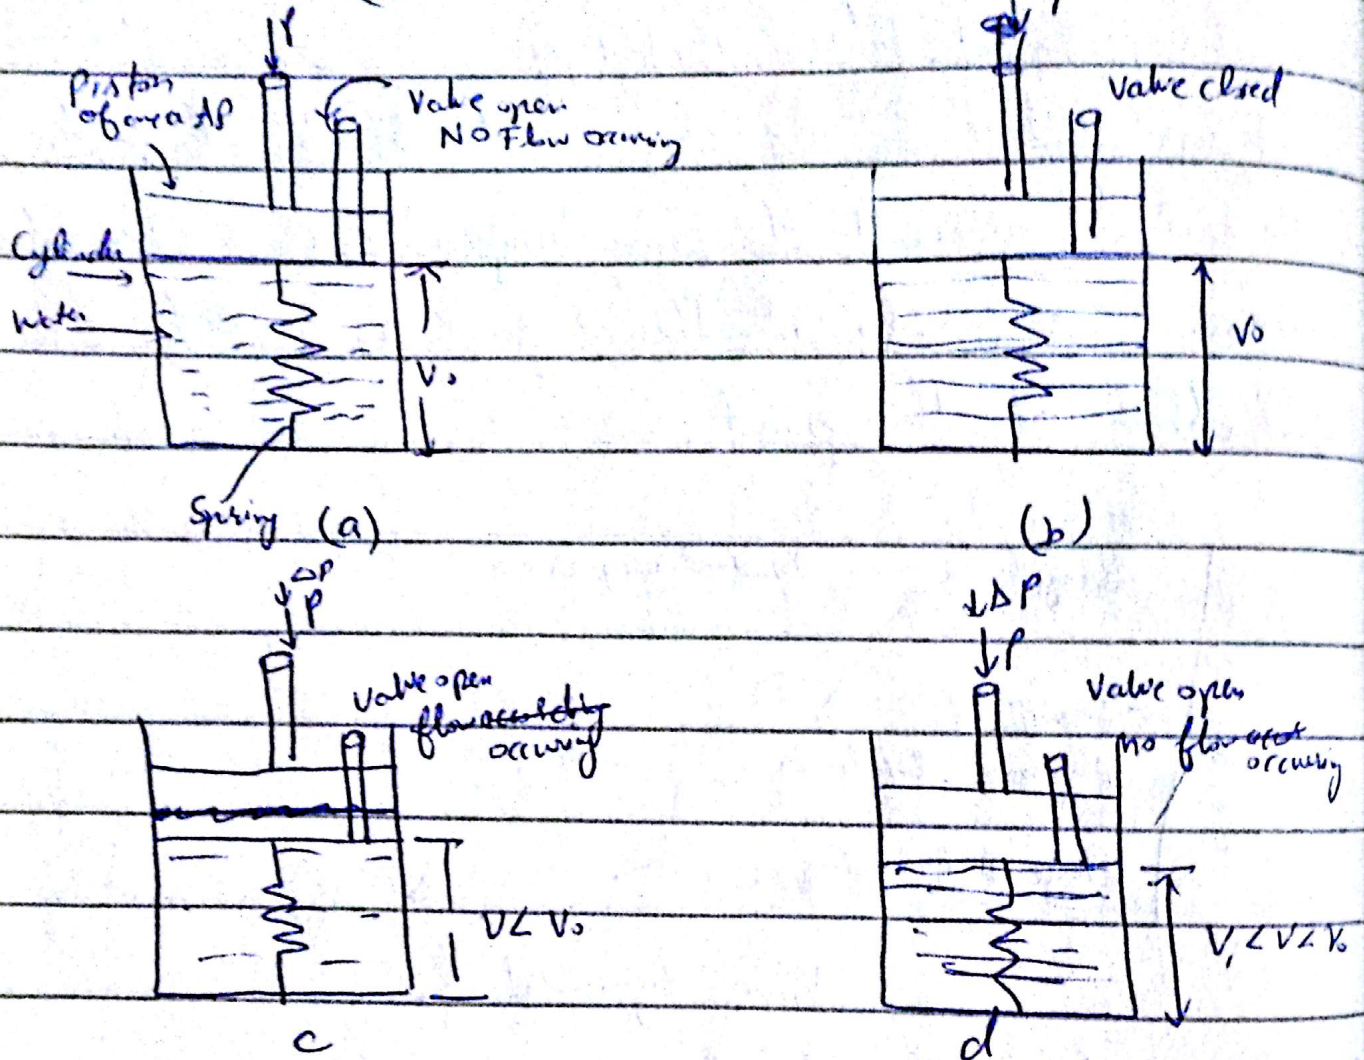 P
Piston
of area AP
Valve open
NO Flow occuring
Cylinder
Water
V₀
Spring
(a)
P
Valve closed
V₀
(b)
ΔP
P
Valve open
flow
occuring
V < V₀
c
ΔP
P
Valve open
no flow
occuring
V₁ < V < V₀
d